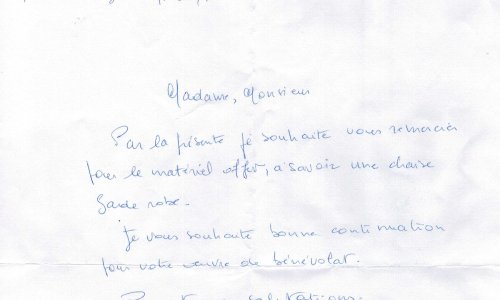 Madame, Monsieur
Par la présente je souhaite vous remercier
pour le matériel offert, à savoir une chaise
garde robe.
Je vous souhaite bonne continuation
pour votre œuvre de bénévolat.
salutations.